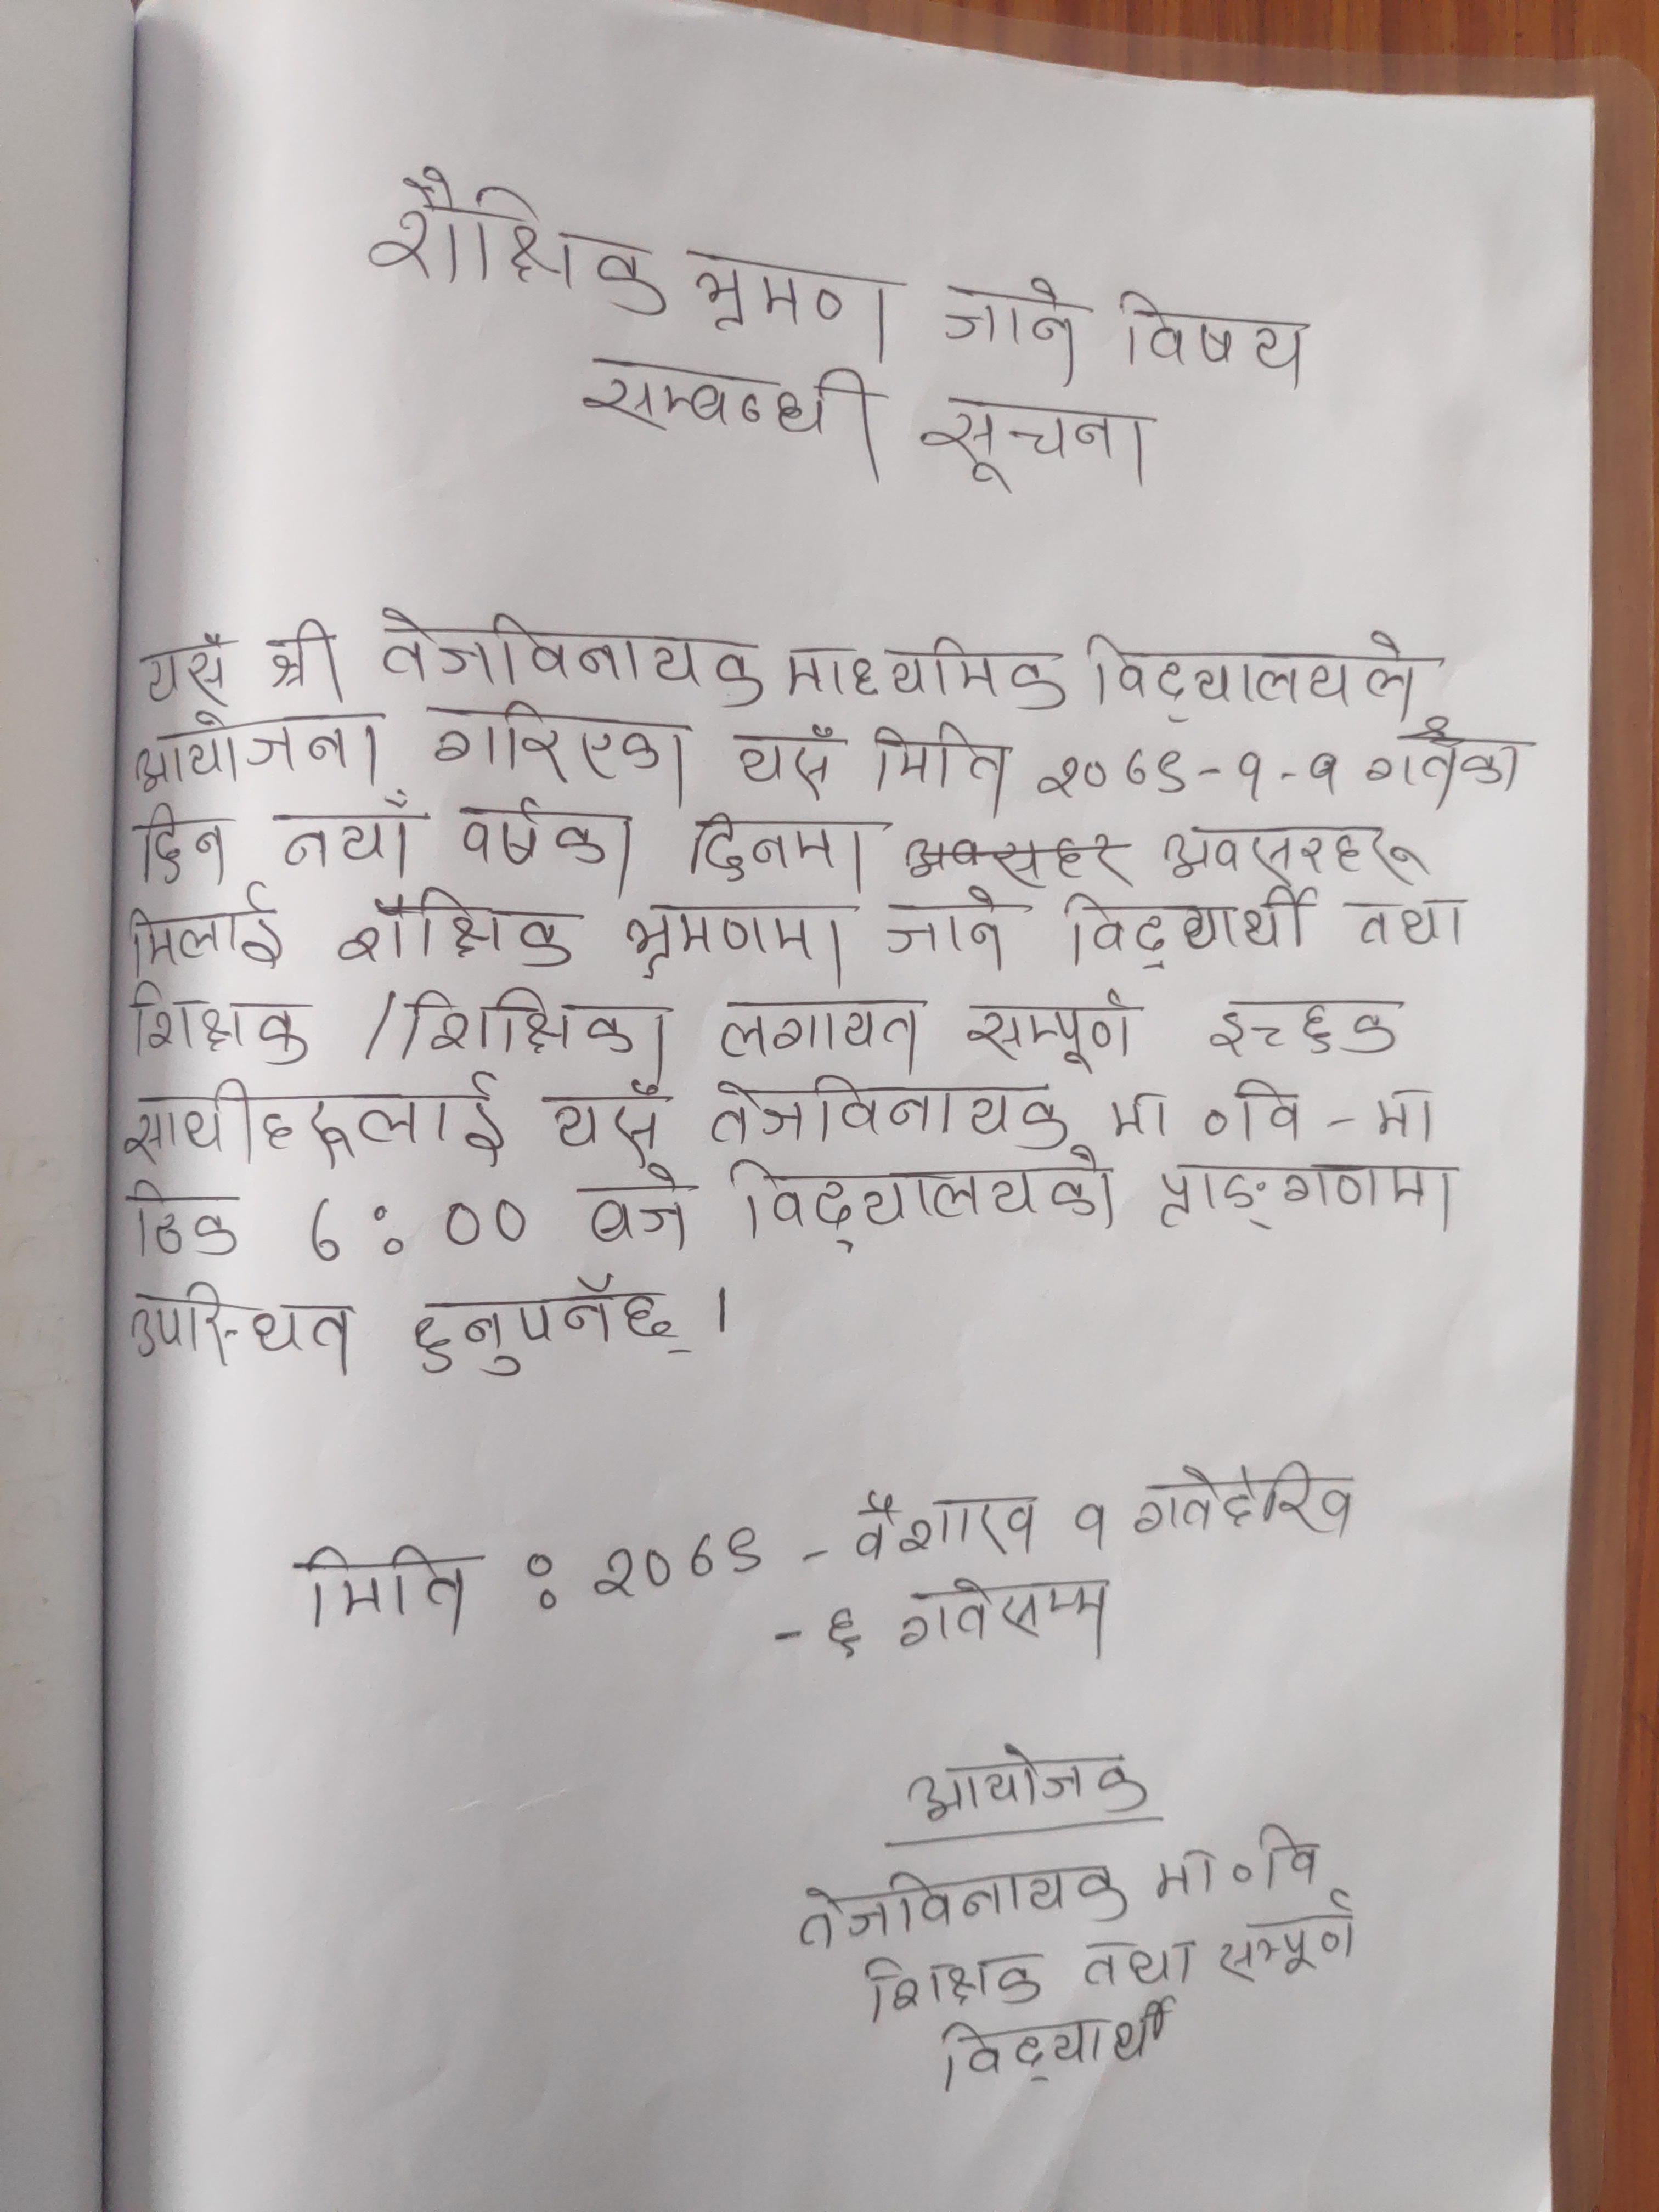 शैक्षिक भ्रमण जाने विषय
सम्बन्धी सूचना
यसै श्री तेजविनायक माध्यमिक विद्यालयले
आयोजना गरिएका यसै मिति २०७९-१-१ गतेका
दिन नयाँ वर्षका दिनमा अवसरहरू
मिलाई शैक्षिक भ्रमणमा जाने विद्यार्थी तथा
शिक्षक /शिक्षिका लगायत सम्पूर्ण इच्छुक
साथीहरूलाई यसै तेजविनायक मा ०वि-मा
ठिक ७:०० बजे विद्यालयको प्राङ्गणमा
उपस्थित हुनुपर्नेछ् ।
मिति : २०७९ - वैशाख १ गतेदेखि
- ६ गतेसम्म
आयोजक
तेजविनायक मा०वि
शिक्षक तथा सम्पूर्ण
विद्यार्थी